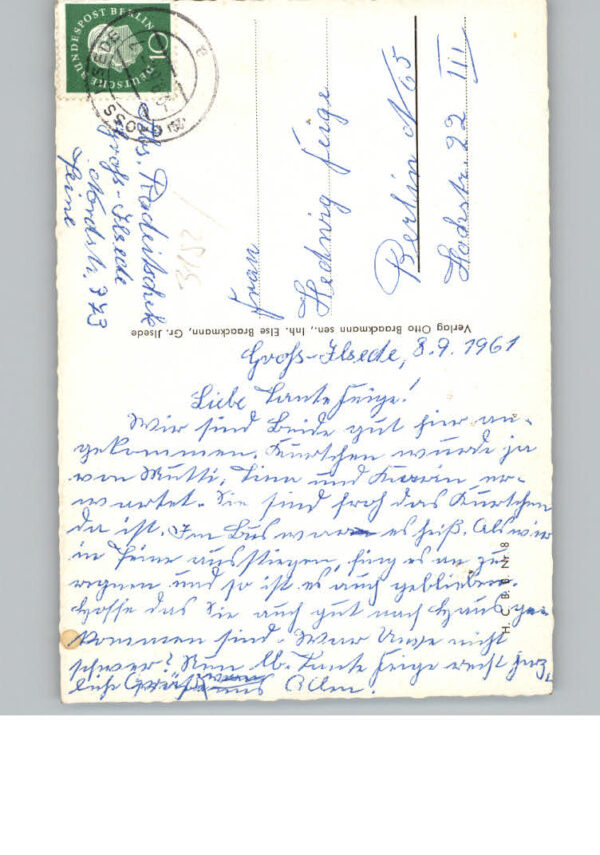 DEUTSCHE BUNDESPOST BERLIN
10
Abs. Radeitschek
Groß-Ilsede
Nordstr. 373
Peine
2515
Frau
Hedwig Feige
Berlin N 65
Hochstr. 22 III
Verlag Otto Braackmann sen., Inh. Else Braackmann, Gr. Jlsede
H. C. B. B. Nr. 8
Groß-Ilsede, 8.9.1961
Liebe Tante Feige!
Wir sind Beide gut hier an-
gekommen. Kurtchen wurde ja
von Mutti, und Karin er-
wartet. Sie sind froh das Kurtchen
da ist. Im Bus war es heiß. Als wir
in Peine ausstiegen, fing es an zu
regnen und so ist es auch geblieben.
Hoffe das Sie auch gut nach Haus ge-
kommen sind. War nicht
schwer? Nun lb. Tante Feige recht herz-
liche Grüße